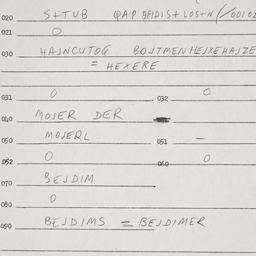 020 S+TUB QAP BEIDIS+LOS+N (/00102
021 O
030 HAJNCUTOG BOJTMENHEJXEHAJZE
= HEXERE
031 O 032 O
040 MOJER DER
050 MOJERL 051 –
052 O 060 O
070 BEJDIM
080 O
090 BEJDIMS = BEJDIMER